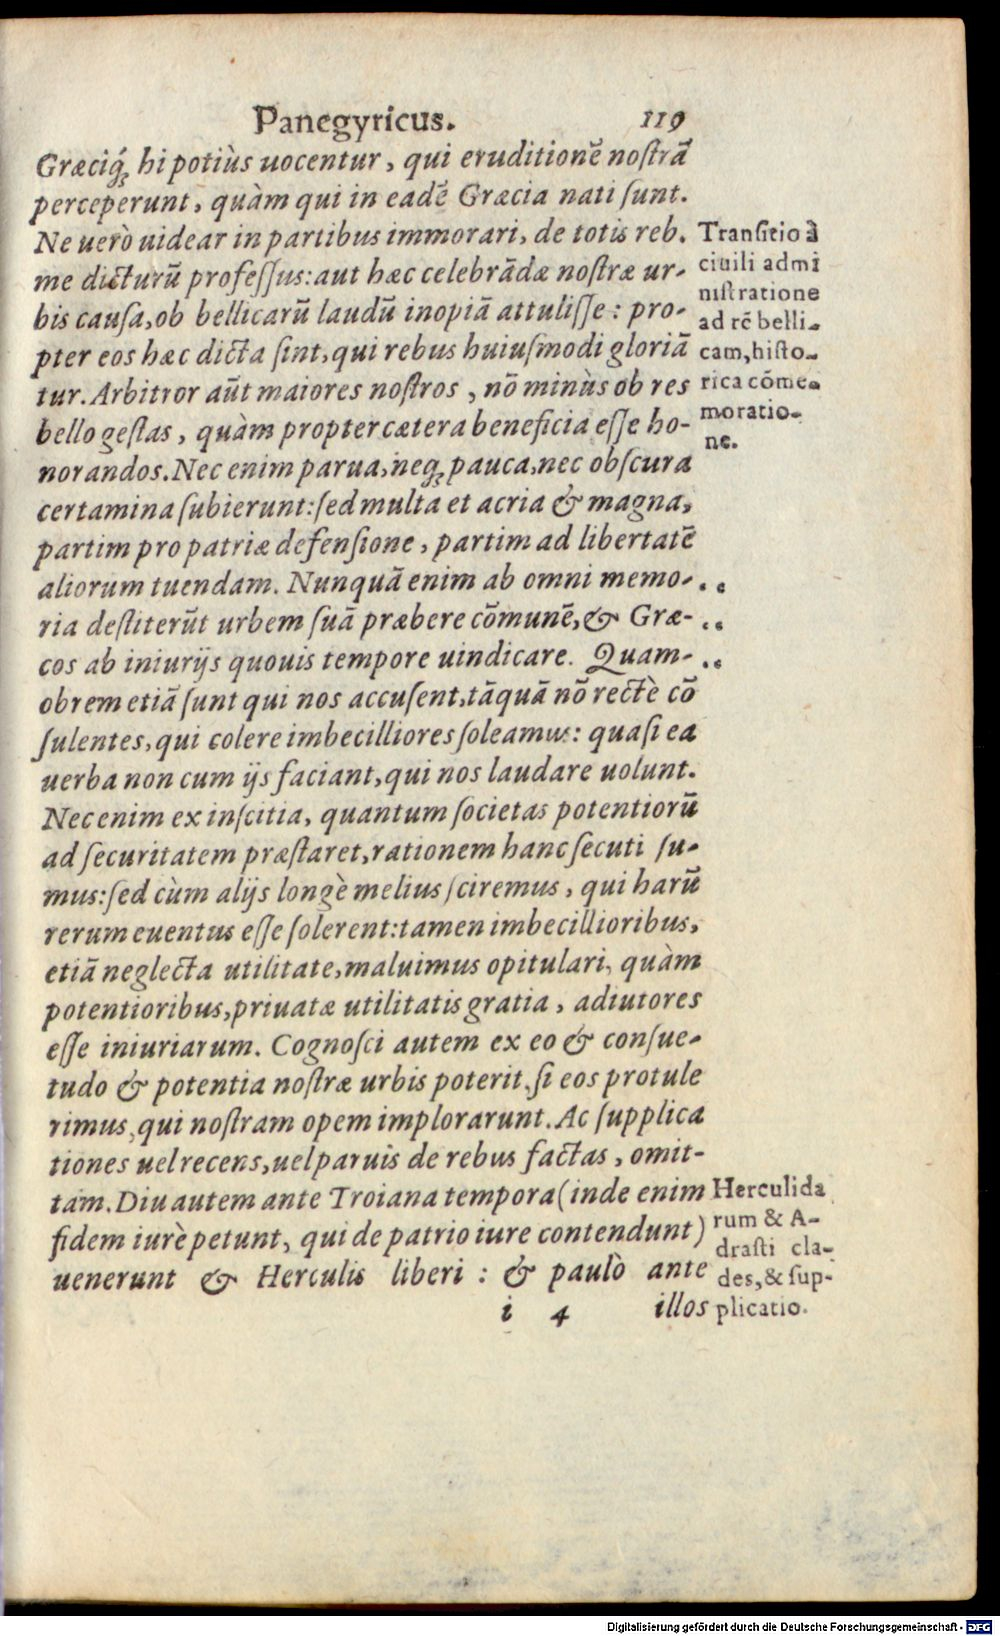 Panegyricus. 119
Græciq́ꝫ hi potiùs uocentur, qui eruditionē nostrā
perceperunt, quàm qui in eadē Græcia nati sunt.
Ne uerò uidear in partibus immorari, de totis reb.
me dicturū professus: aut hæc celebrādæ nostræ ur-
bis causa, ob bellicarū laudū inopiā attulisse: pro-
pter eos hæc dicta sint, qui rebus huiusmodi gloriā
tur. Arbitror aūt maiores nostros, nō minùs ob res
bello gestas, quàm propter cætera beneficia esse ho-
norandos. Nec enim parua, neqꝫ pauca, nec obscura
certamina subierunt: sed multa et acria & magna,
partim pro patriæ defensione, partim ad libertatē
aliorum tuendam. Nunquā enim ab omni memo-
ria destiterūt urbem suā præbere cōmunē, & Græ-
cos ab iniurijs quouis tempore uindicare. Quam-
obrem etiā sunt qui nos accusent, tāquā nō rectè cō
sulentes, qui colere imbecilliores soleamus: quasi ea
uerba non cum ijs faciant, qui nos laudare uolunt.
Nec enim ex inscitia, quantum societas potentiorū
ad securitatem præstaret, rationem hanc secuti su-
mus: sed cùm alijs longè melius sciremus, qui harū
rerum euentus esse solerent: tamen imbecillioribus,
etiā neglecta utilitate, maluimus opitulari, quàm
potentioribus, priuatæ utilitatis gratia, adiutores
esse iniuriarum. Cognosci autem ex eo & consue-
tudo & potentia nostræ urbis poterit, si eos protule
rimus, qui nostram opem implorarunt. Ac supplica
tiones uel recens, uel paruis de rebus factas, omit-
tam. Diu autem ante Troiana tempora (inde enim
fidem iurè petunt, qui de patrio iure contendunt)
uenerunt & Herculis liberi: & paulò ante
i 4 illos
Transitio à
ciuili admi
nistratione
ad rē belli-
cam, histo-
rica cōme-
moratio-
ne.
Herculida
rum & A-
drasti cla-
des, & sup-
plicatio.
Digitalisierung gefördert durch die Deutsche Forschungsgemeinschaft - DFG